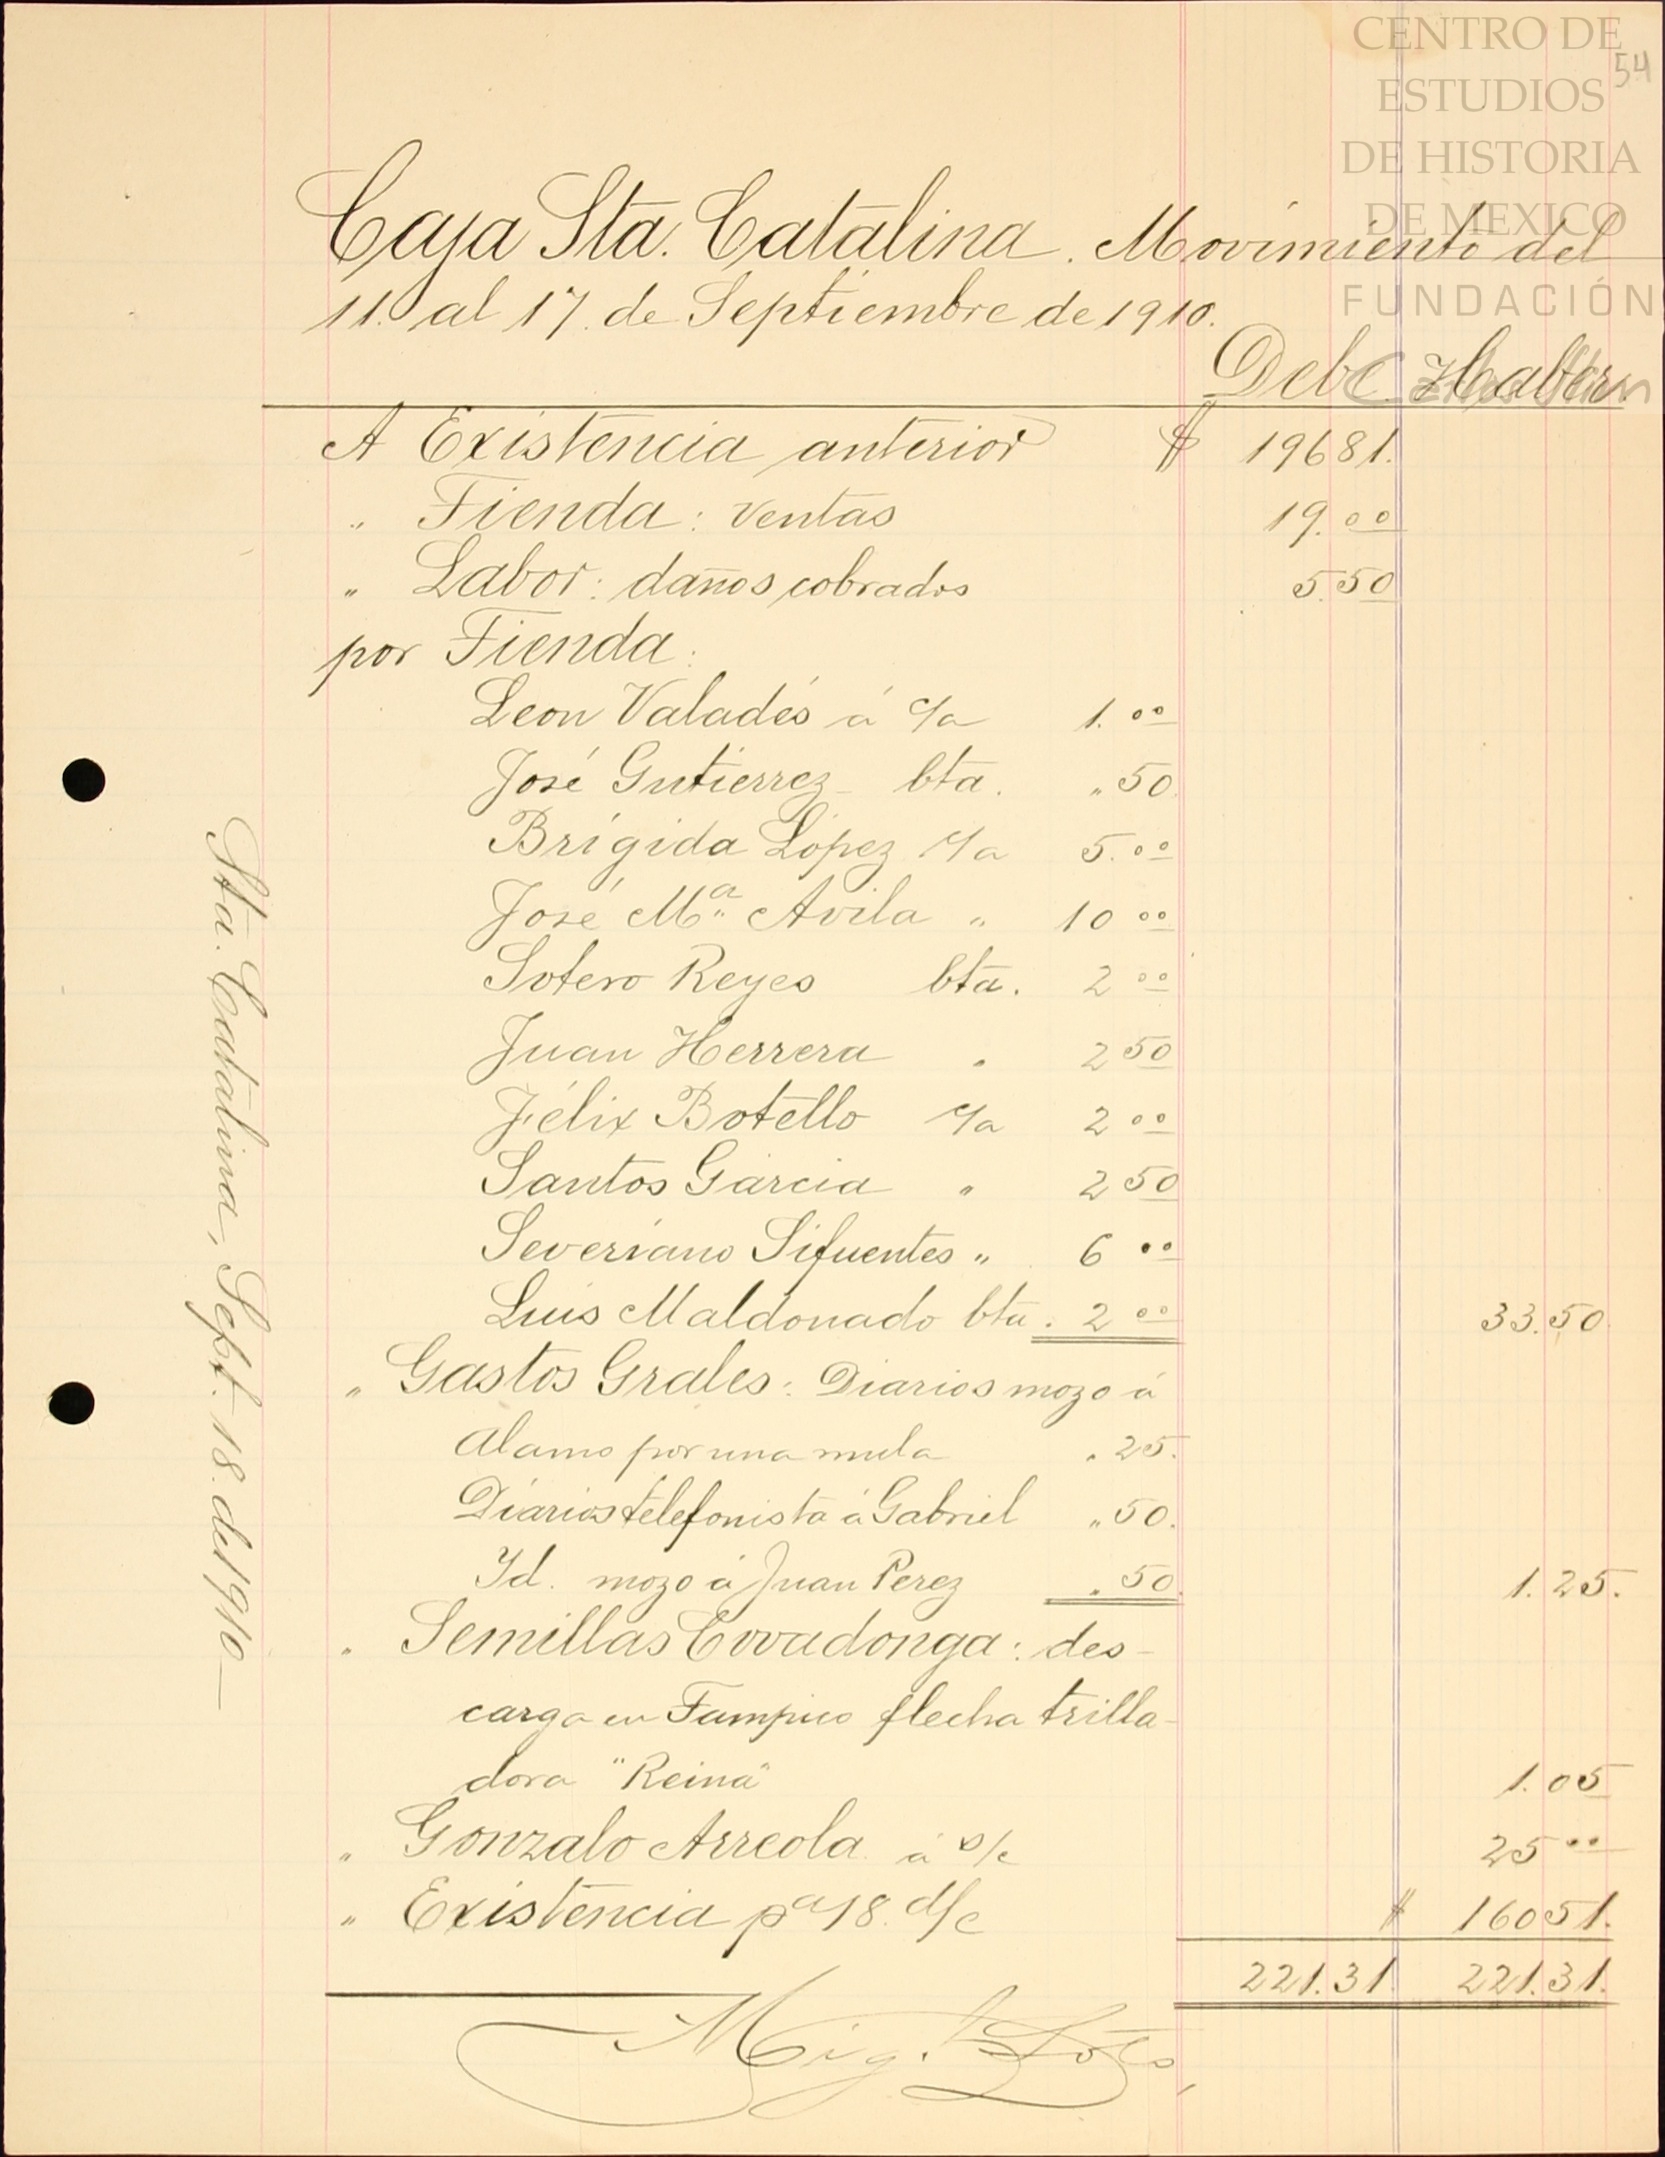 CENTRO DE
ESTUDIOS
DE HISTORIA
DE MEXICO
FUNDACIÓN
54
Caja Sta. Catalina. Movimiento del
11. al 17. de Septiembre de 1910.
Debe Haber.
A Existencia anterior $ 19681.
" Tienda: ventas 19.00
" Labor: daños cobrados 5.50
por Tienda:
Leon Valadés á c/a 1.00
José Gutierrez bta. " 50.
Brígida López c/a 5.00
José Ma. Avila " 10 00
Sotero Reyes bta. 2 00
Juan Herrera " 2 50
Félix Botello c/a 2 00
Santos Garcia " 2 50
Severiano Sifuentes " 6 00
Luis Maldonado bta. 2 00 33.50.
" Gastos Grales: Diarios mozo á
Alamo por una mula " 25.
Diarios telefonista á Gabriel " 50.
Id. mozo á Juan Perez " 50. 1.25.
" Semillas Covadonga: des-
carga en Tampico flecha trilla-
dora "Reina" 1.05
" Gonzalo Arreola á s/c 25 00
" Existencia pa 18. d/c $ 16051.
221.31. 221.31.
Mig.
Sta. Catalina, Sept. 18. de 1910